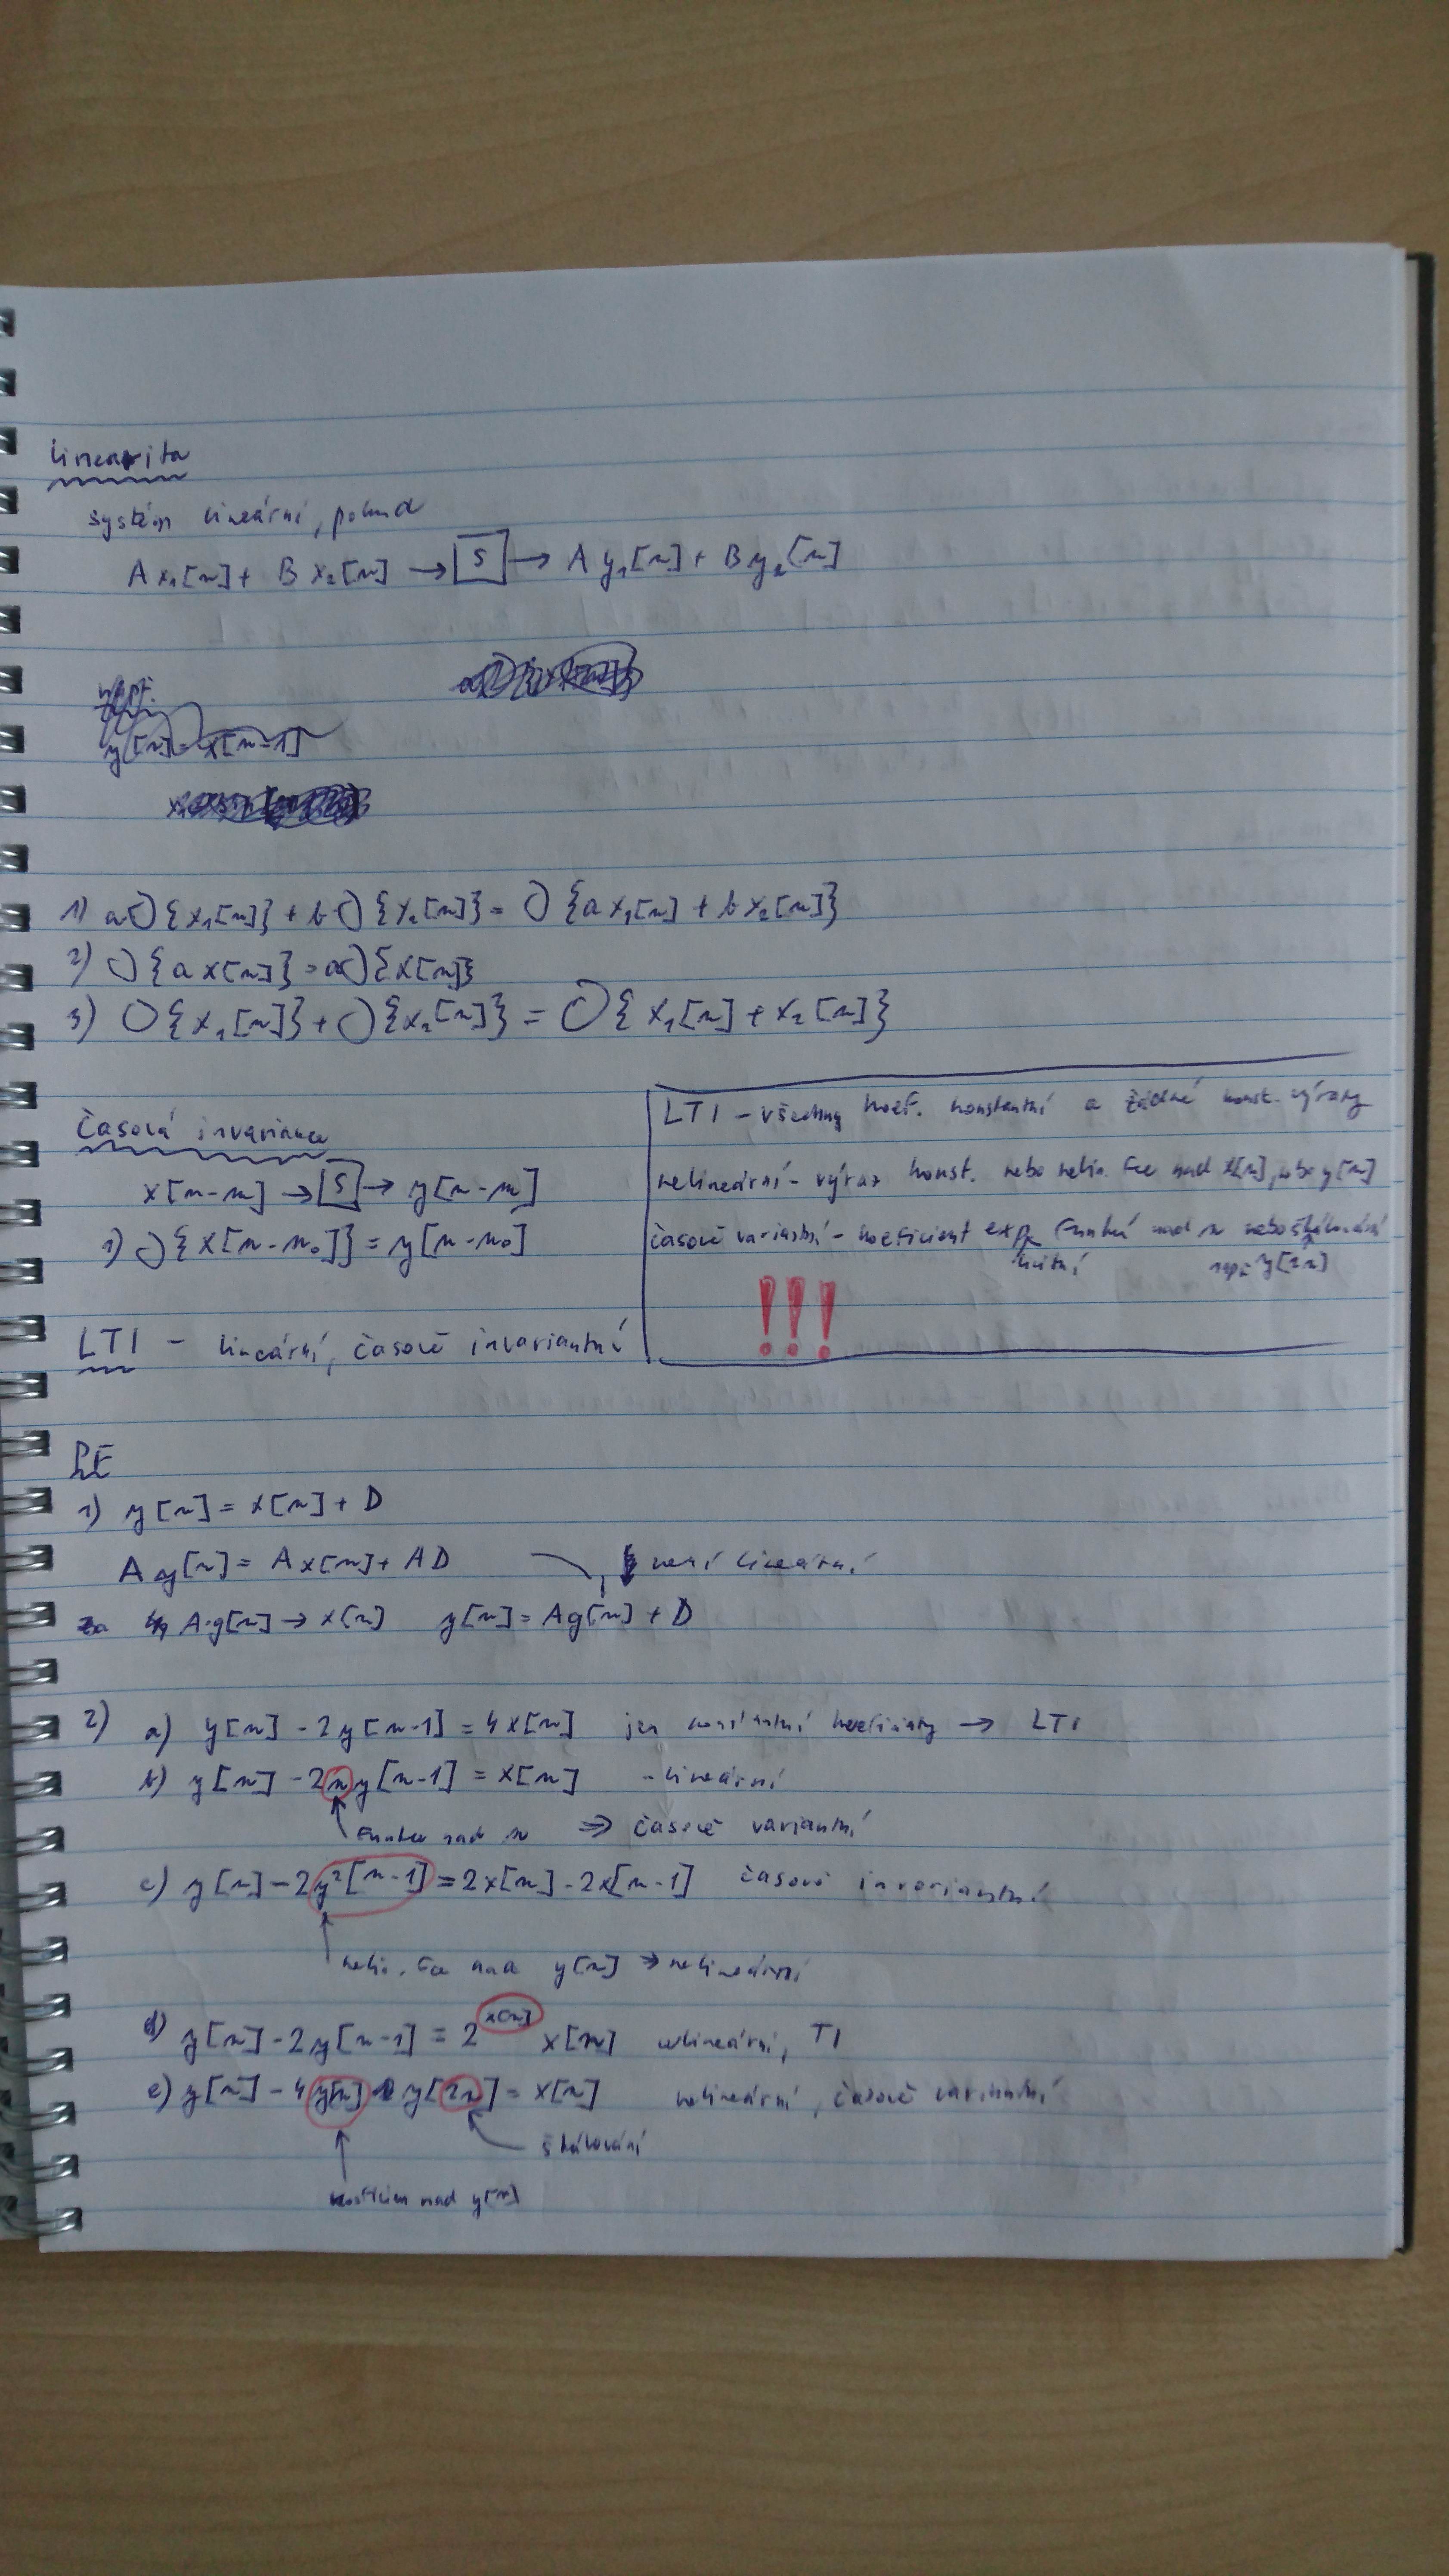 Linearita
systém lineární, pokud
A x₁[n] + B x₂[n] → S → A y₁[n] + B y₂[n]
např.
y[n] = x[n-1]
1) a O{x₁[n]} + b O{x₂[n]} = O{a x₁[n] + b x₂[n]}
2) O{a x[n]} = a O{x[n]}
3) O{x₁[n]} + O{x₂[n]} = O{x₁[n] + x₂[n]}
Časová invariance
x[n-m] → S → y[n-m]
1) O{x[n-n₀]} = y[n-n₀]
LTI - lineární, časově invariantní
LTI - všechny koef. konstantní a žádné konst. výrazy
nelineární - výraz konst. nebo nelin. fce nad x[n], nebo y[n]
časově variantní - koeficient explicitní funkcí nad n nebo škálování
např. y[2n]
!!!
PŘ
1) y[n] = x[n] + D
A y[n] = A x[n] + AD není lineární
za A·g[n] → x[n] y[n] = A g[n] + D
2) a) y[n] - 2y[n-1] = 4x[n] jen konstantní koeficienty → LTI
b) y[n] - 2n y[n-1] = x[n] - lineární
funkce nad n ⇒ časově variantní
c) y[n] - 2y²[n-1] = 2x[n] - 2x[n-1] časově invariantní
nelin. fce nad y[n] → nelineární
d) y[n] - 2y[n-1] = 2^x[n] x[n] nelineární, TI
e) y[n] - 4y[n] y[2n] = x[n] nelineární, časově variantní
škálování
nad y[n]